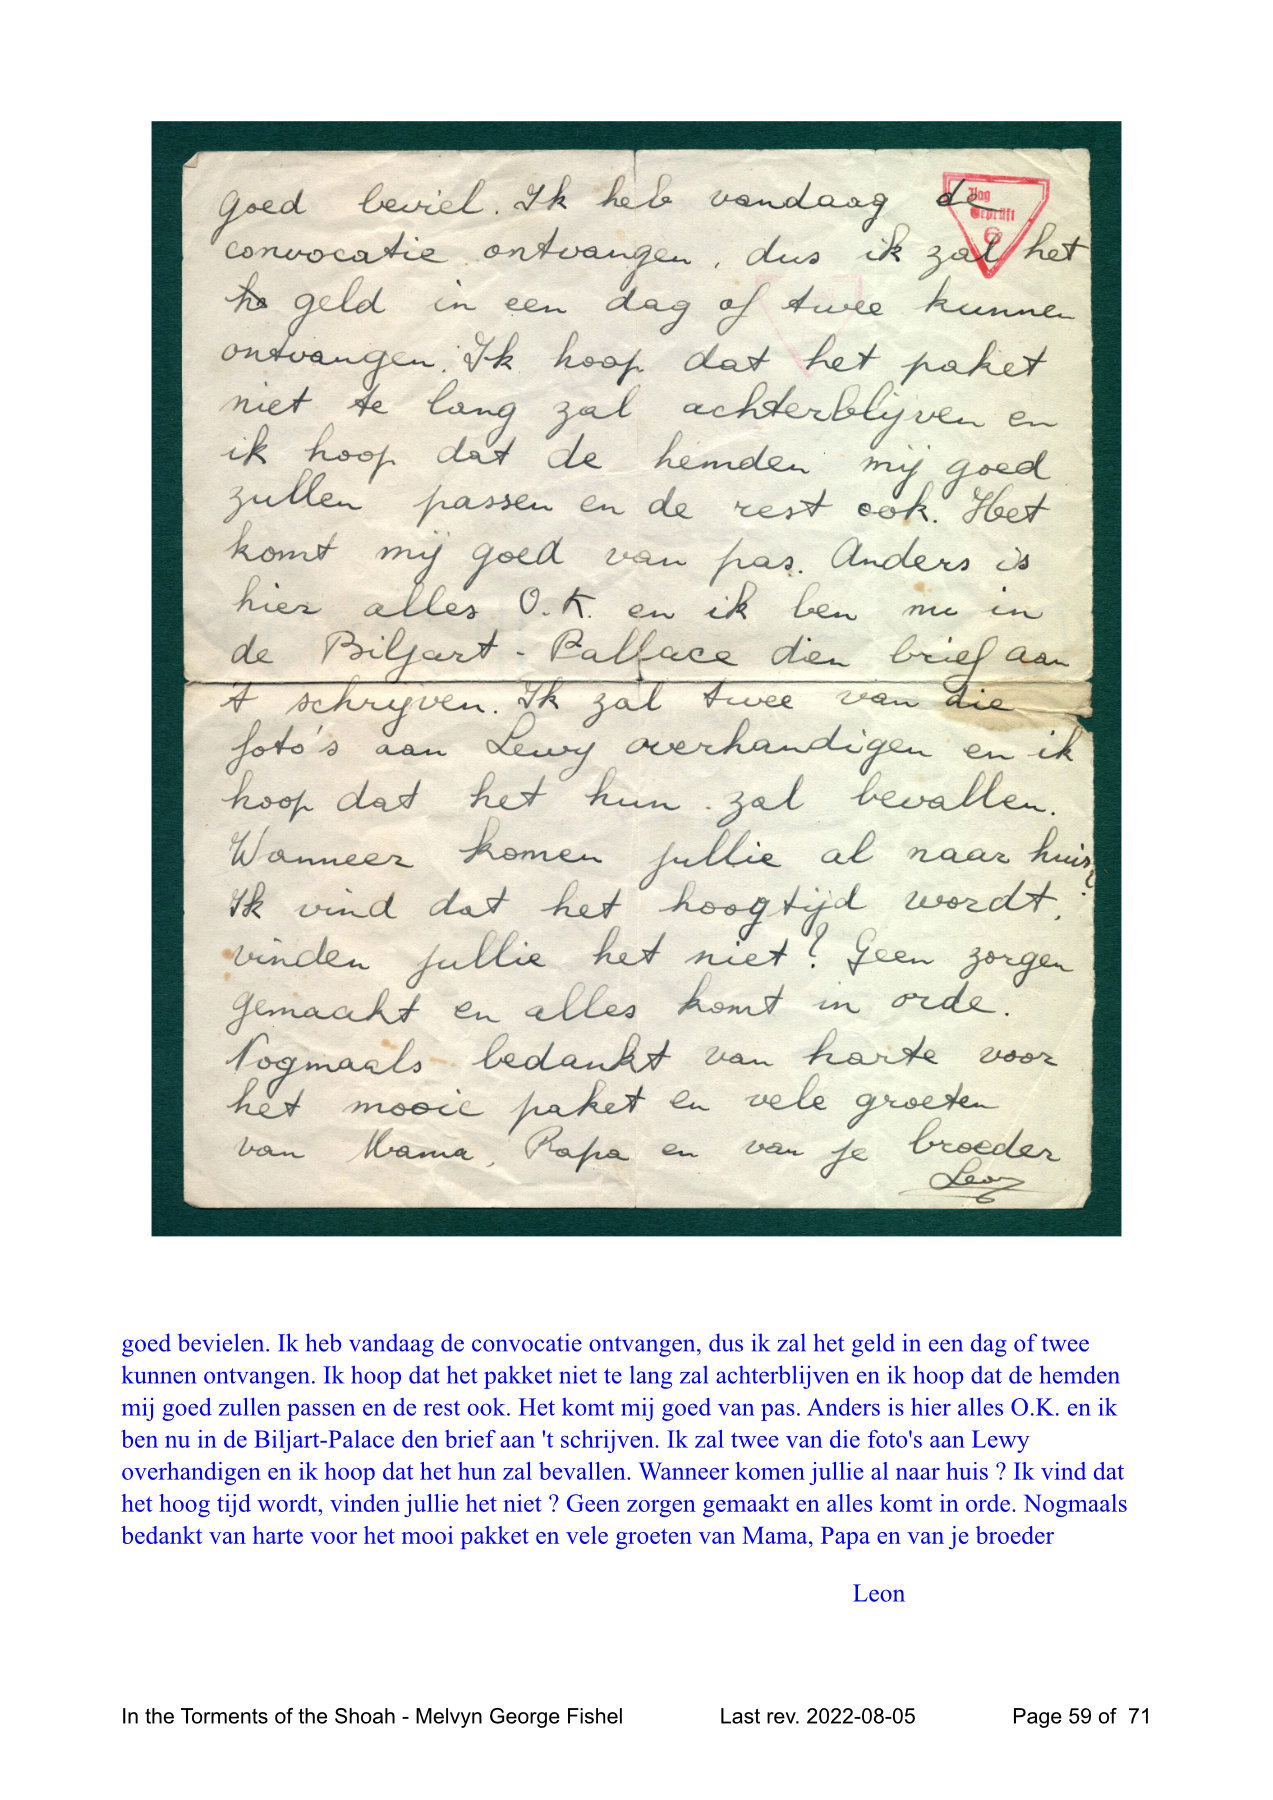 goed beviel. Ik heb vandaag de
Ilag
Geprüft
6
convocatie ontvangen, dus ik zal het
ho geld in een dag of twee kunnen
ontvangen. Ik hoop dat het paket
niet te lang zal achterblijven en
ik hoop dat de hemden mij goed
zullen passen en de rest ook. Het
komt mij goed van pas. Anders is
hier alles O.K. en ik ben nu in
de Biljart - Pallace dien brief aan
't schrijven. Ik zal twee van die
foto's aan Lewy overhandigen en ik
hoop dat het hun zal bevallen.
Wanneer komen jullie al naar huis?
Ik vind dat het hoogtijd wordt,
vinden jullie het niet? Geen zorgen
gemaakt en alles komt in orde.
Nogmaals bedankt van harte voor
het mooie paket en vele groeten
van Mama, Papa en van je broeder
Leon
goed bevielen. Ik heb vandaag de convocatie ontvangen, dus ik zal het geld in een dag of twee
kunnen ontvangen. Ik hoop dat het pakket niet te lang zal achterblijven en ik hoop dat de hemden
mij goed zullen passen en de rest ook. Het komt mij goed van pas. Anders is hier alles O.K. en ik
ben nu in de Biljart-Palace den brief aan 't schrijven. Ik zal twee van die foto's aan Lewy
overhandigen en ik hoop dat het hun zal bevallen. Wanneer komen jullie al naar huis ? Ik vind dat
het hoog tijd wordt, vinden jullie het niet ? Geen zorgen gemaakt en alles komt in orde. Nogmaals
bedankt van harte voor het mooi pakket en vele groeten van Mama, Papa en van je broeder
Leon
In the Torments of the Shoah - Melvyn George Fishel Last rev. 2022-08-05 Page 59 of 71